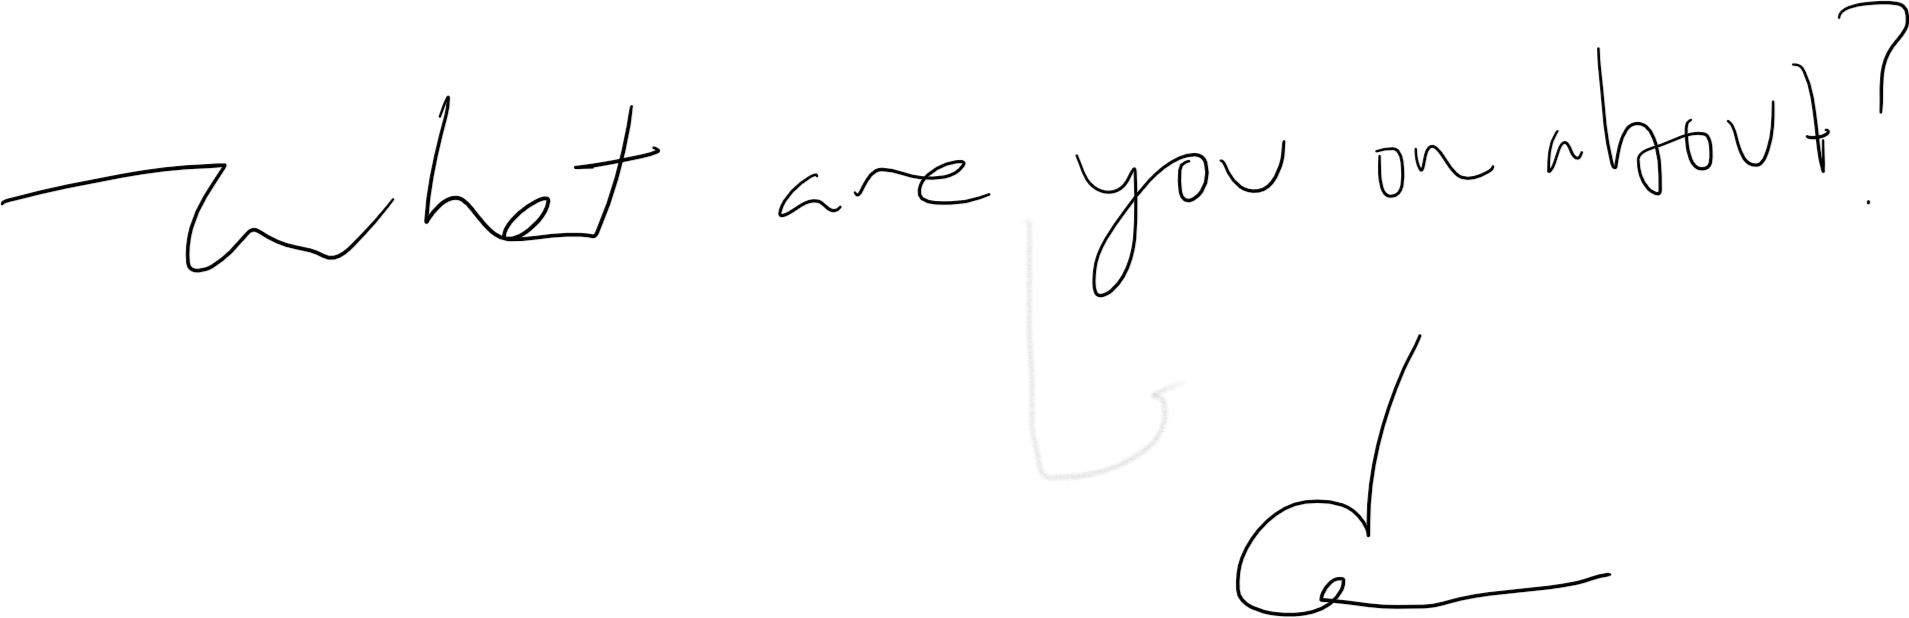 What are you on about?
d